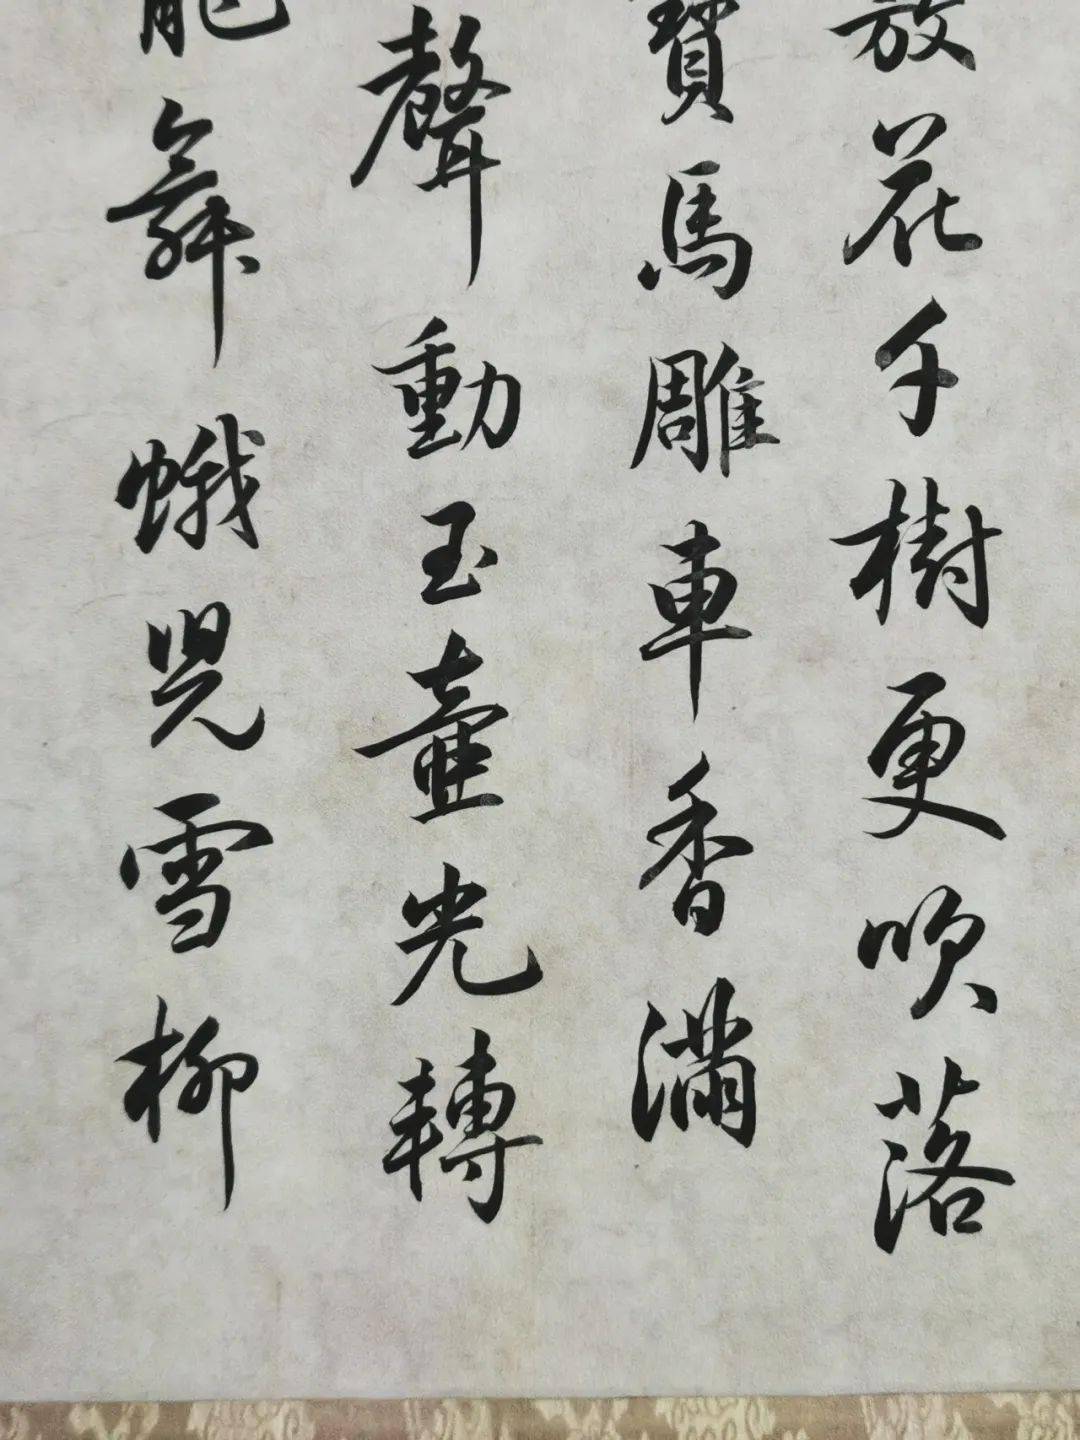 放花千樹更吹落
寶馬雕車香滿
聲動玉壷光轉
龍舞蛾児雪柳